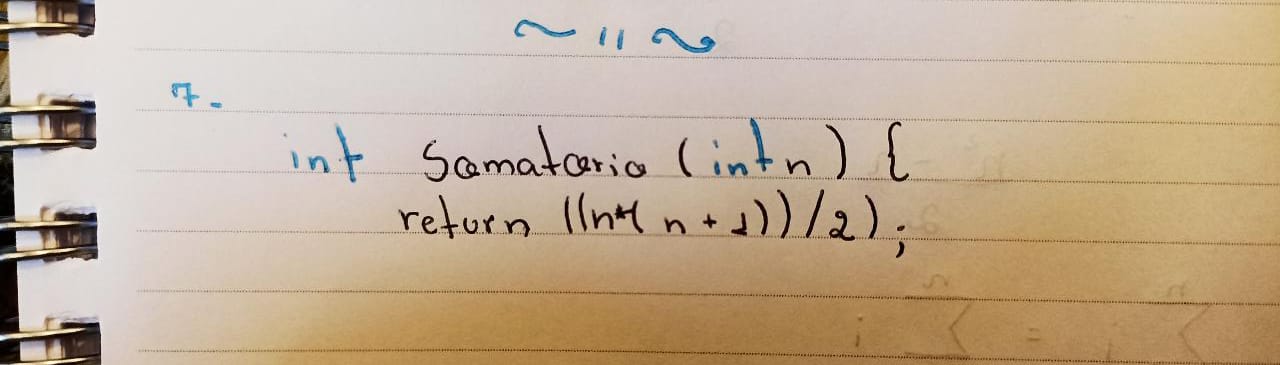 ~ 11 ~
7-
int Somatorio (int n) {
return ((n*( n + 1))/2);